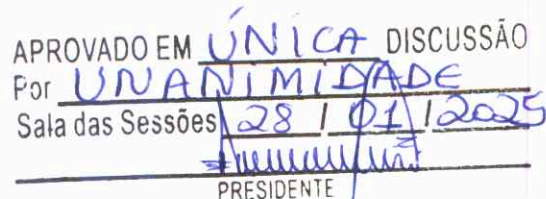 APROVADO EM ÚNICA DISCUSSÃO
Por UNANIMIDADE
Sala das Sessões 28 / 01 / 2025
PRESIDENTE